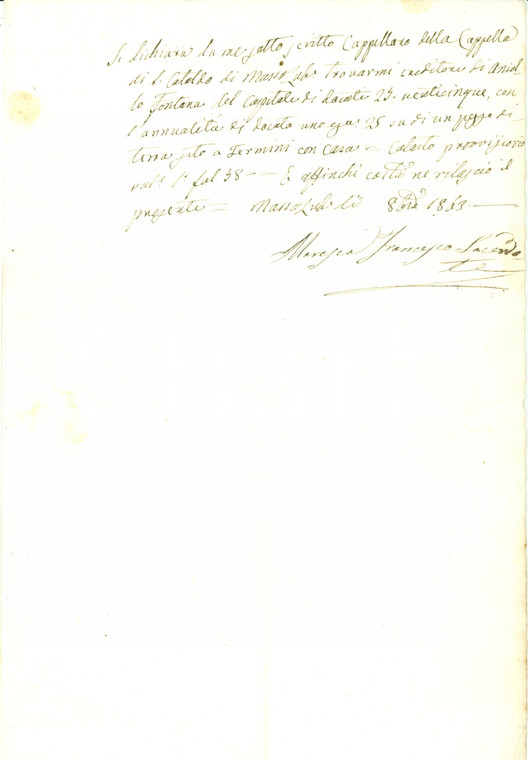 Si dichiara da me sottoscritto Cappellano della Cappella
di S. Cataldo di Massa Lub. trovarmi creditore di Aniel-
lo Fontana del Capitale di docate 25. venticinque, con
l'annualità di docato uno e gr. 25 su di un pezzo di
terra sito a Termini con casa = Catasto provvisorio
fol 38 — E affinchè costi ne rilascio il
presente = Massa Lub. lì 8bre 1813 —
Maresca Francesco Sacerdo
te